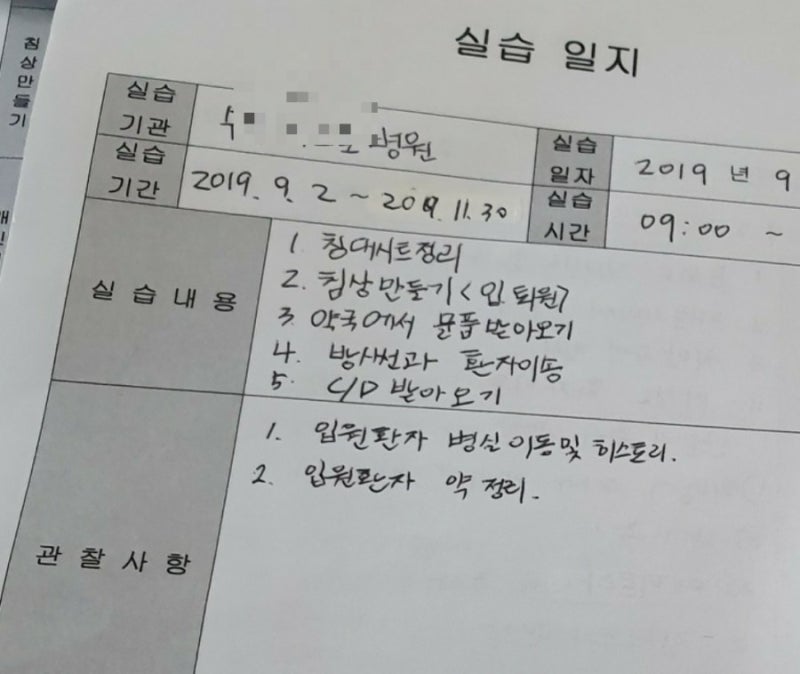 침상만들기
실습 일지
실습기관 병원 실습일자 2019 년 9
실습기간 2019. 9. 2 ~ 2019. 11. 30 실습시간 09:00 ~
실습내용
1. 침대시트정리
2. 침상만들기 <입퇴원>
3 약국에서 물품받아오기
4. 방사선과 환자이송
5. C/D 받아오기
관찰사항
1. 입원환자 병실이동및 히스토리.
2. 입원환자 약정리.